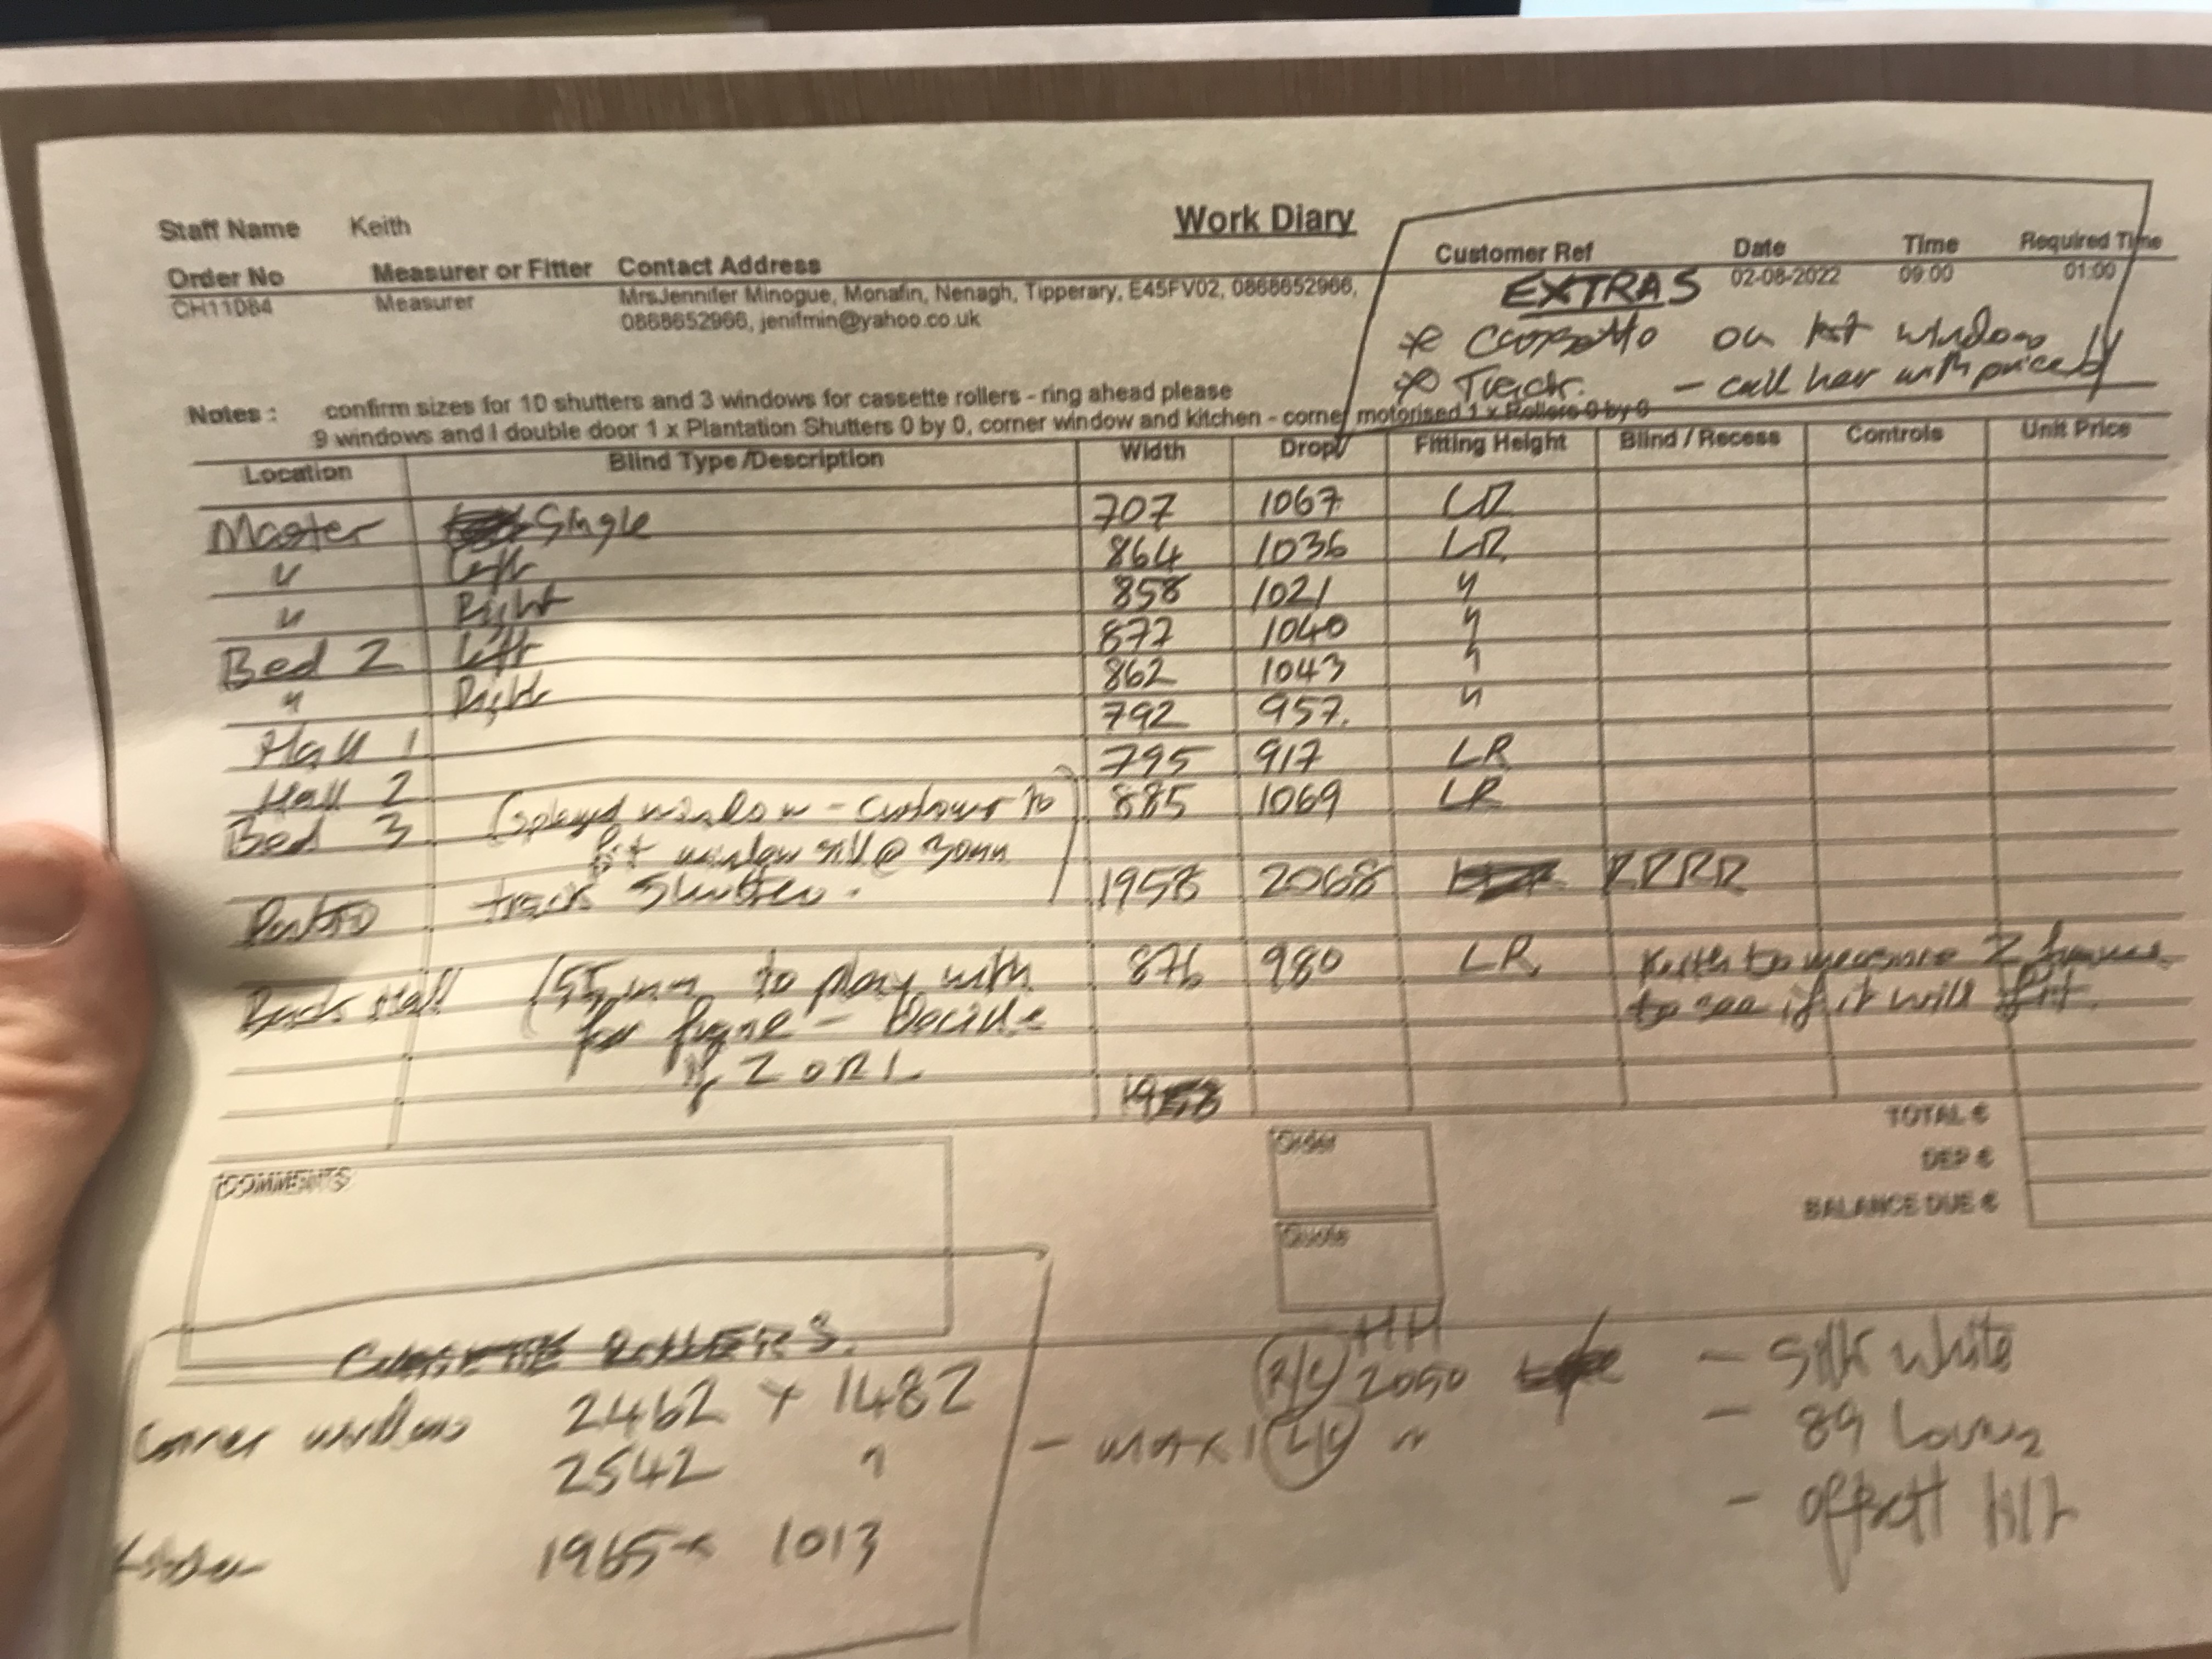 Work Diary
Staff Name Keith
Order No Measurer or Fitter Contact Address Customer Ref Date Time Required Time
CH11084 Measurer MrsJennifer Minogue, Monafin, Nenagh, Tipperary, E45FV02, 0868652966, 02-08-2022 09:00 01:00
0868652966, jenifmin@yahoo.co.uk
EXTRAS
on window
- call her with price
Notes : confirm sizes for 10 shutters and 3 windows for cassette rollers - ring ahead please
9 windows and I double door 1 x Plantation Shutters 0 by 0, corner window and kitchen - corner motorised 1 x Rollers 0 by 0
Location Blind Type /Description Width Drop Fitting Height Blind / Recess Controls Unit Price
Master Single 707 1067 LR
" Left 864 1036 LR
" Right 858 1021 "
Bed 2 Left 877 1040 "
" Right 862 1043 "
Hall 1 792 957 "
Hall 2 795 917 LR
Bed 3 (splayed window - customer to 885 1069 LR
fit window sill @ 30mm
track shutter. 1958 2068 RRRR
Back Hall (55mm to play with 876 980 LR Keith to measure Z frame
for frame - Decide to see if it will fit.
if Z OR L
TOTAL €
DEP €
BALANCE DUE €
COMMENTS
Order
Quote
CASSETTE ROLLERS.
Corner window 2462 x 1482 R/C HH 2050
2542 " - L/C "
Kitchen 1965 x 1013
- Silk white
- 89
- offsett tilt